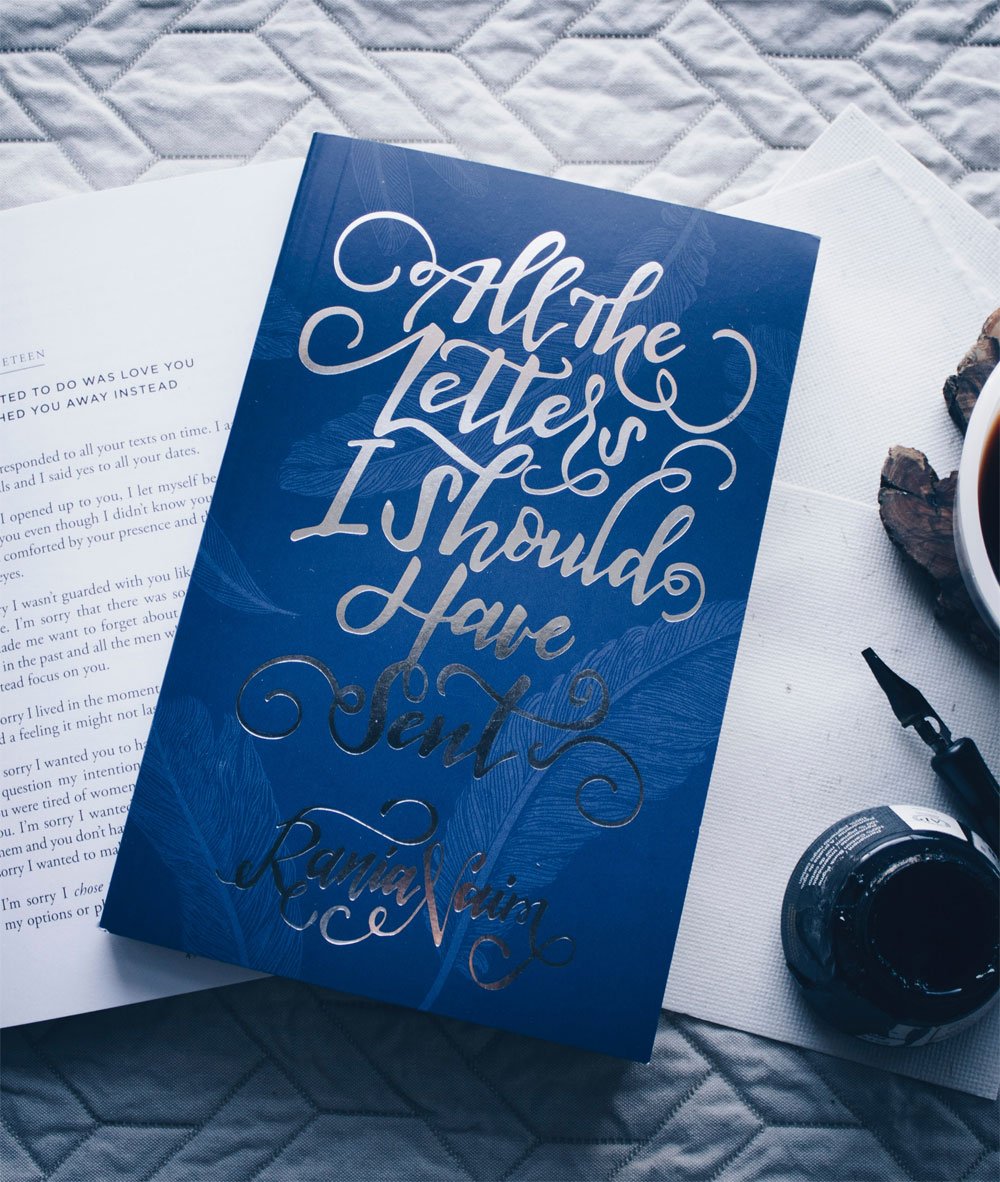 All the
Letters
I Should
Have
Sent
Rania Naim
ETEEN
TED TO DO WAS LOVE YOU
HED YOU AWAY INSTEAD
responded to all your texts on time. I a
ls and I said yes to all your dates.
I opened up to you, I let myself be
you even though I didn't know you
comforted by your presence and th
eyes.
ry I wasn't guarded with you lik
e. I'm sorry that there was so
ade me want to forget about
in the past and all the men w
tead focus on you.
orry I lived in the moment
d a feeling it might not las
sorry I wanted you to ha
question my intention
u were tired of women
ou. I'm sorry I wante
hem and you don't ha
orry I wanted to ma
I'm sorry I chose
my options or pl